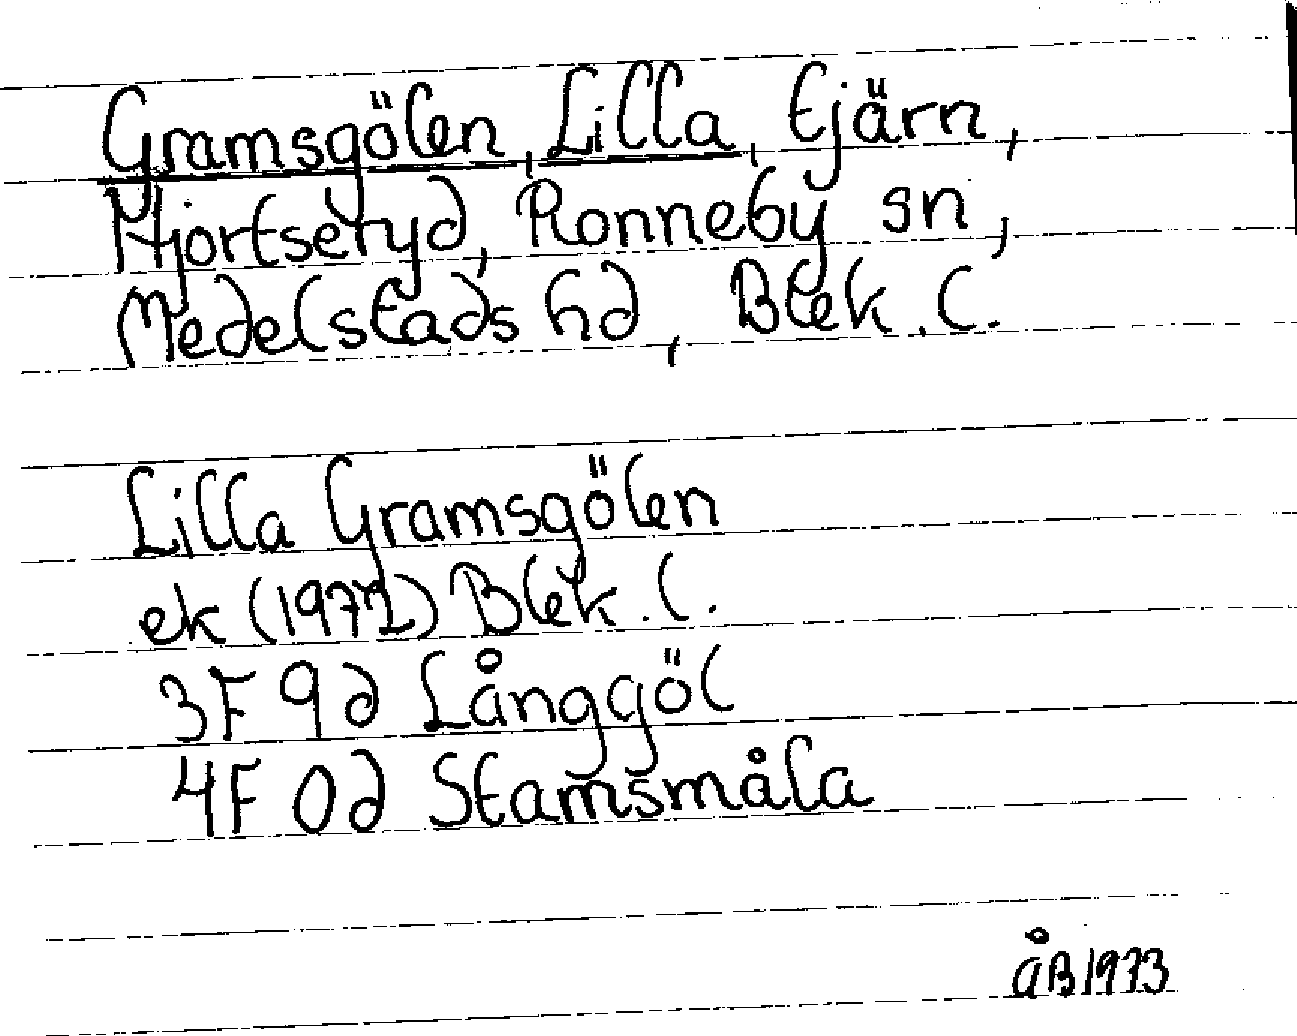 Gramsgölen, Lilla, tjärn,
Hjortseryd, Ronneby sn,
Medelstads hd, Blek. l.
Lilla Gramsgölen
ek (1972) Blek. l.
3F 9d Långgöl
4F 0d Stamsmåla
ÅB 1973